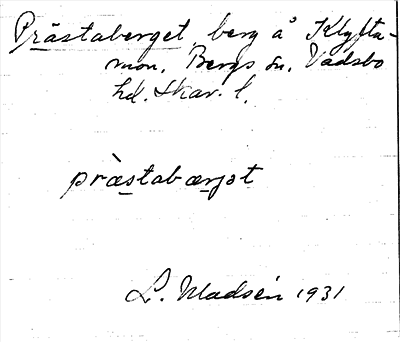 Prästaberget, berg å Klyfta-
mon, Bergs sn, Vadsbo
hd. Skar. l.
pràstabærjət
L. Madsén 1931